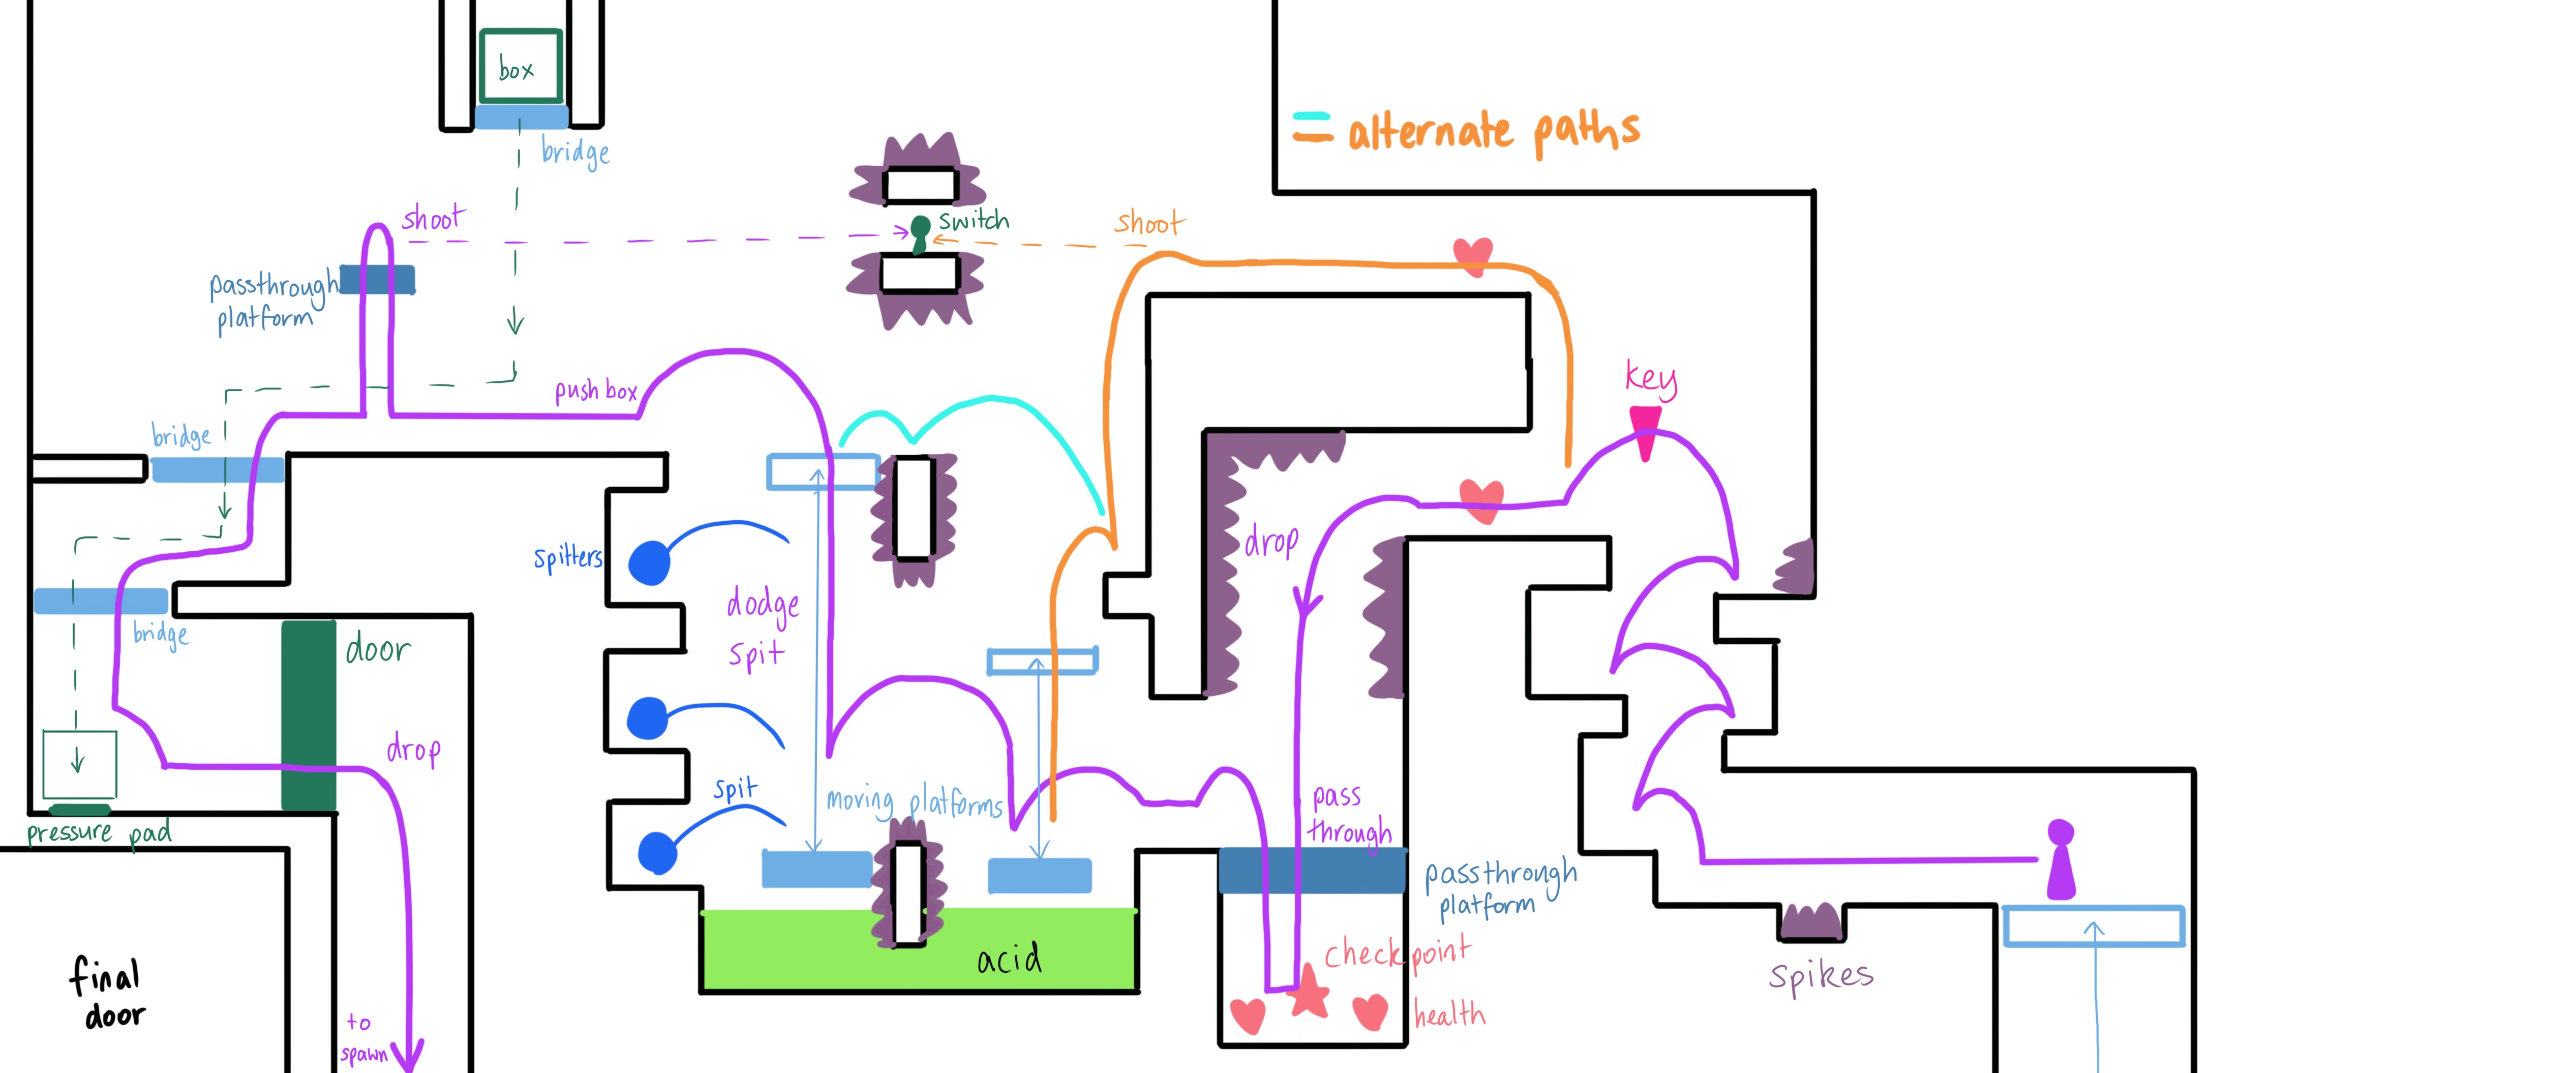 box
bridge
alternate paths
shoot
switch
shoot
passthrough
platform
key
push box
bridge
drop
spitters
dodge
spit
bridge
door
drop
spit
moving platforms
pass
through
pressure pad
passthrough
platform
checkpoint
acid
spikes
final
door
health
to
spawn